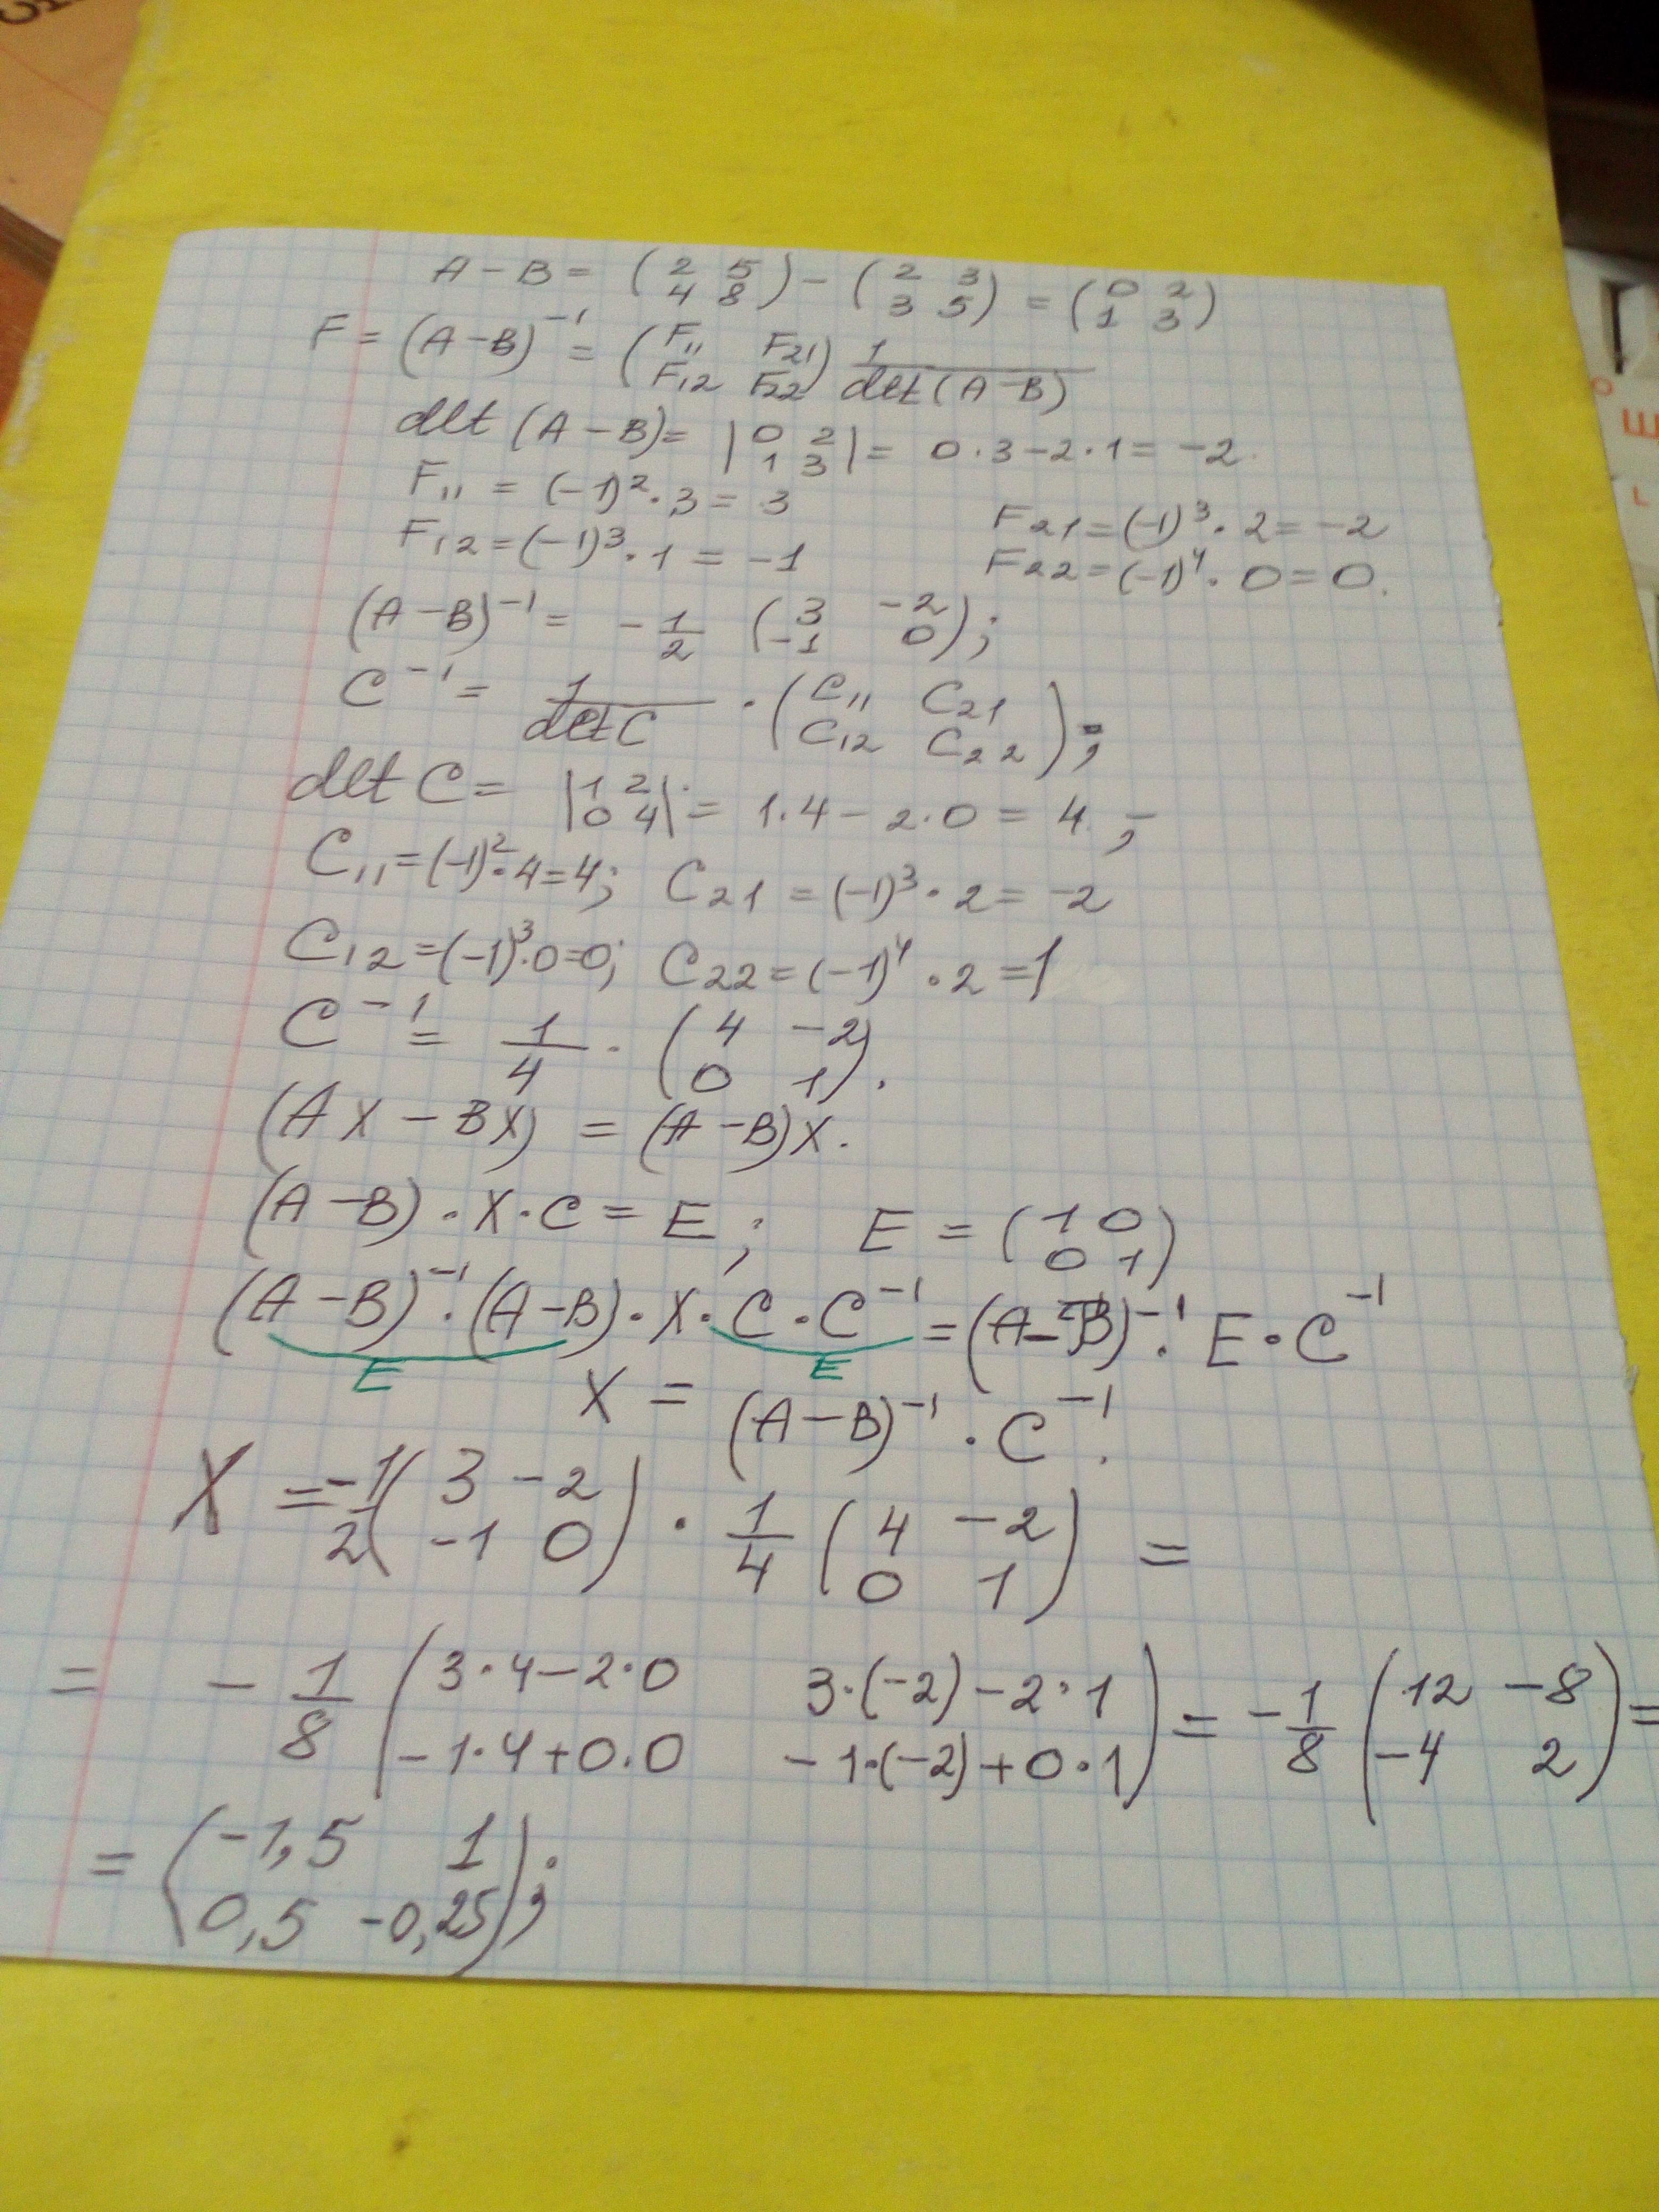 A - B = (2 5 4 8) - (2 3 3 5) = (0 2 1 3)
F = (A - B)⁻¹ = (F₁₁ F₂₁ F₁₂ F₂₂) 1/det(A - B)
det (A - B) = |0 2 1 3| = 0·3 - 2·1 = -2.
F₁₁ = (-1)²·3 = 3 F₂₁ = (-1)³·2 = -2
F₁₂ = (-1)³·1 = -1 F₂₂ = (-1)⁴·0 = 0.
(A - B)⁻¹ = -1/2 (3 -2 -1 0);
C⁻¹ = 1/det C · (C₁₁ C₂₁ C₁₂ C₂₂);
det C = |1 2 0 4| = 1·4 - 2·0 = 4;
C₁₁ = (-1)²·4 = 4; C₂₁ = (-1)³·2 = -2
C₁₂ = (-1)³·0 = 0; C₂₂ = (-1)⁴·2 = 1
C⁻¹ = 1/4 · (4 -2 0 1).
(AX - BX) = (A - B)X.
(A - B)·X·C = E; E = (1 0 0 1)
(A - B)⁻¹·(A - B)·X·C·C⁻¹ = (A - B)⁻¹·E·C⁻¹
E E
X = (A - B)⁻¹·C⁻¹.
X = -1/2 (3 -2 -1 0) · 1/4 (4 -2 0 1) =
= -1/8 (3·4 - 2·0 3·(-2) - 2·1 -1·4 + 0·0 -1·(-2) + 0·1) = -1/8 (12 -8 -4 2) =
= (-1,5 1 0,5 -0,25);